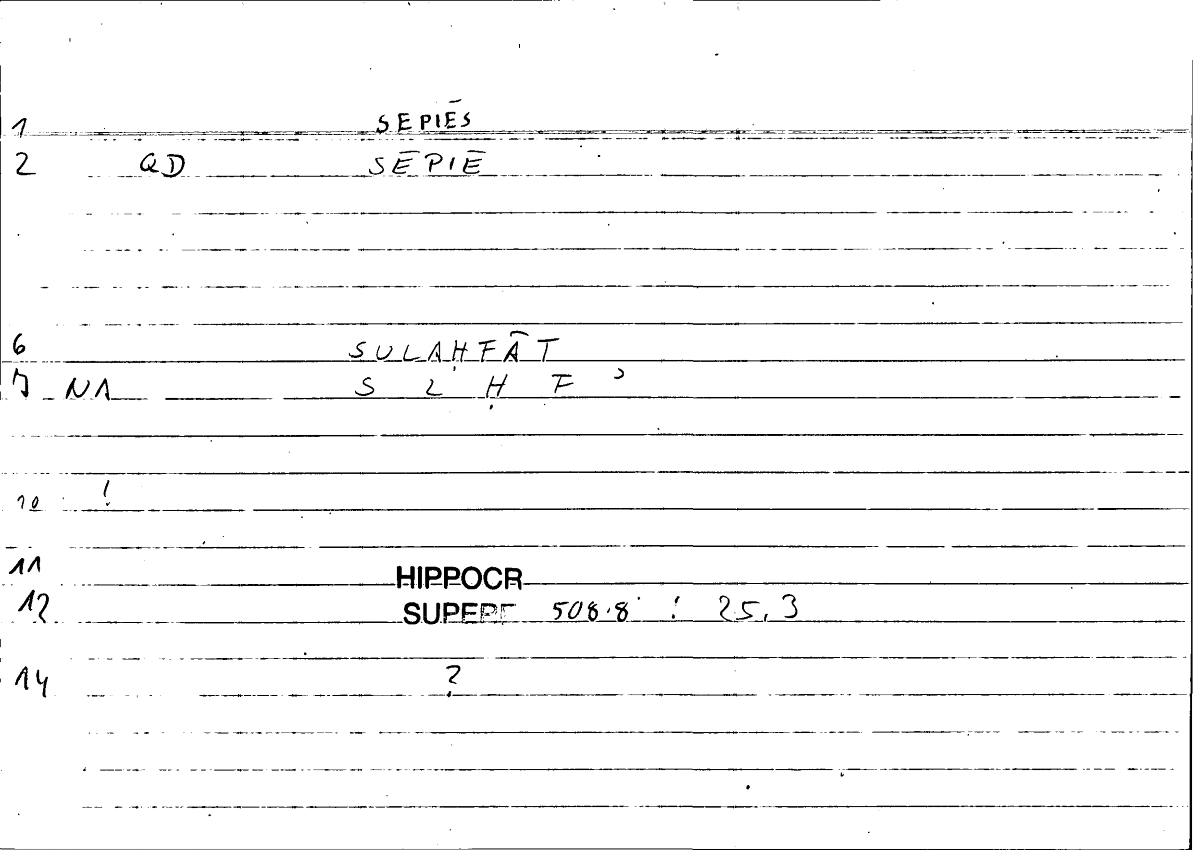 1 SEPIĒS
2 QD SĒPIĒ
6 SULAḤFĀT
7 NA S L Ḥ F ʾ
10 !
11 HIPPOCR
12 SUPERF 508.8 : 25,3
14 ?